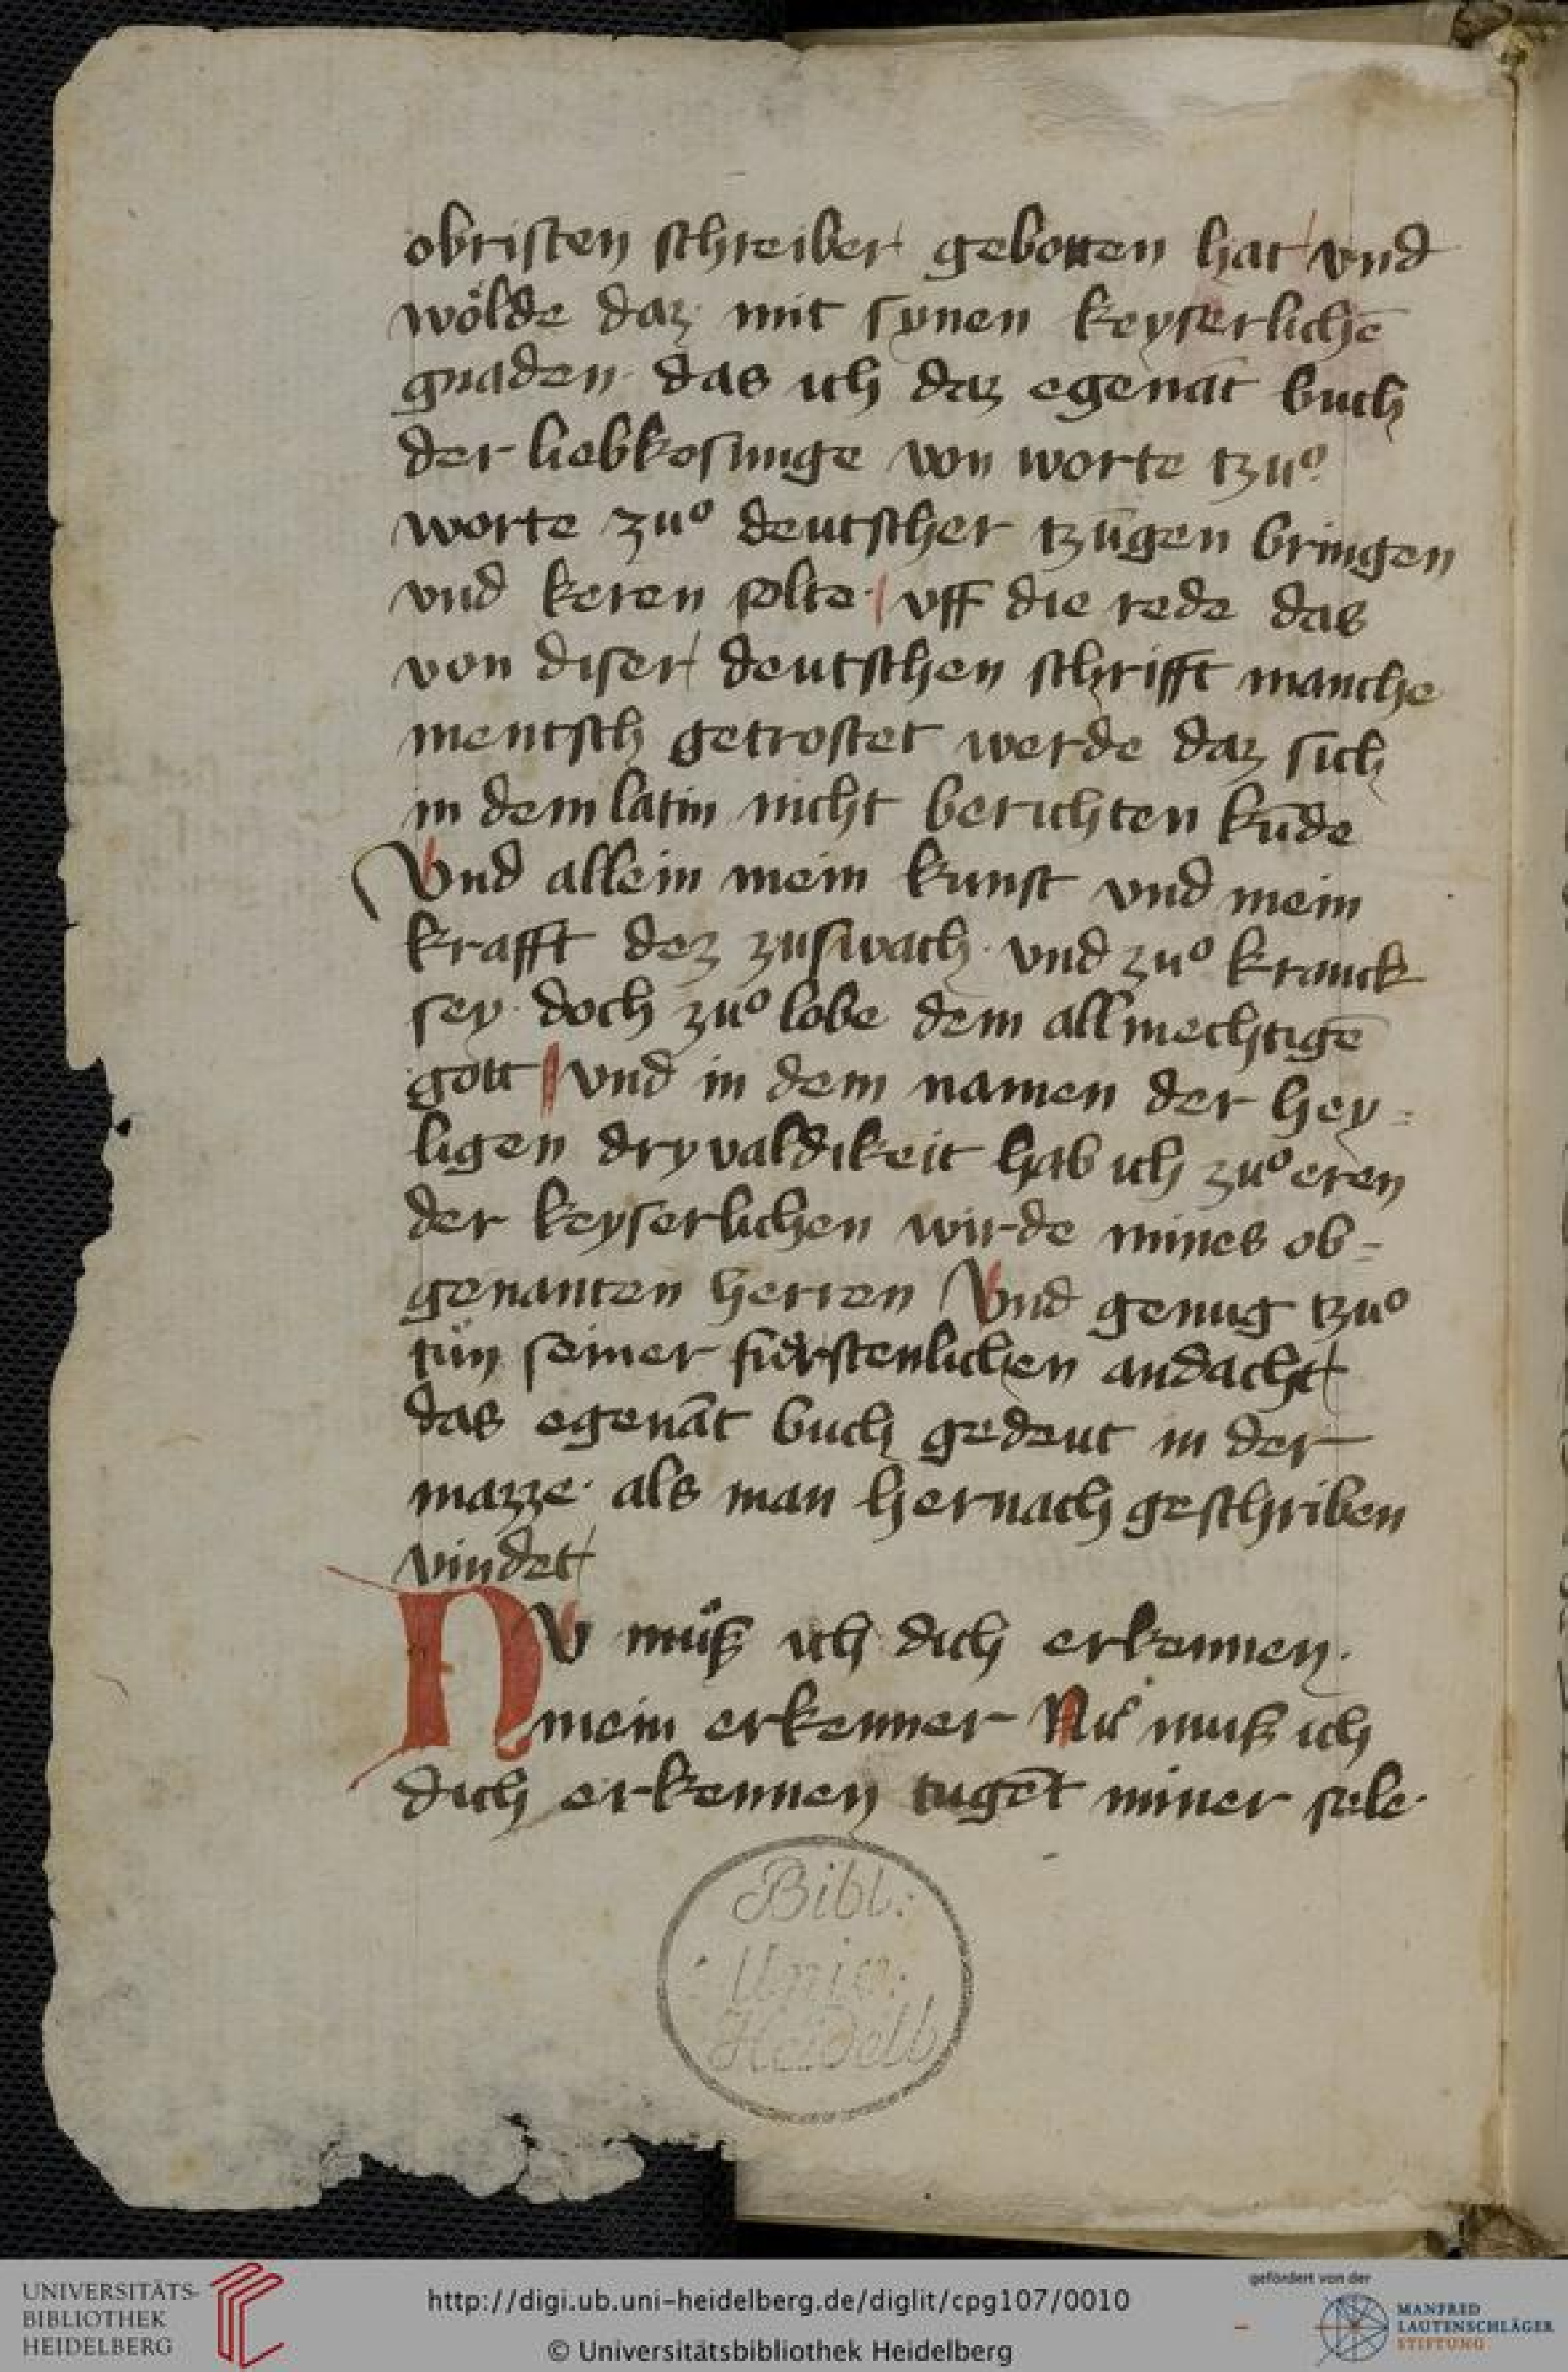 obristen schreiber gebotten hat vnd
wölde daz mit synen keyserlichē
gnaden das ich daz egenāt buch
der liebkosunge von worte tzuͦ
worte zuͦ deutscher tzūgen bringen
vnd keren solte vff die rede das
von diser deutschen schrifft manche
mentsch getrostet werde daz sich
in dem latin nicht berichten kūde
Vnd allein mein kunst vnd mein
krafft dez zuswach vnd zuͦ kranck
sey doch zuͦ lobe dem allmechtigē
gott vnd in dem namen der hey=
ligen dryvaldikeit hab ich zuͦ eren
der keyserlichen wirde mines ob=
genanten herren Vnd genug tzuͦ
tün seiner fuͤrstenlichen andacht
das egenāt buch gedeut in der
mazze als man hernach geschriben
vindet
NV müß ich dich erkennen.
mein erkenner Nuͤ muß ich
dich erkennen tugēt miner sele.
Bibl:
Univ:
Heidelb
UNIVERSITÄTS-
BIBLIOTHEK
HEIDELBERG
http://digi.ub.uni-heidelberg.de/diglit/cpg107/0010
© Universitätsbibliothek Heidelberg
gefördert von der
MANFRED
LAUTENSCHLÄGER
STIFTUNG